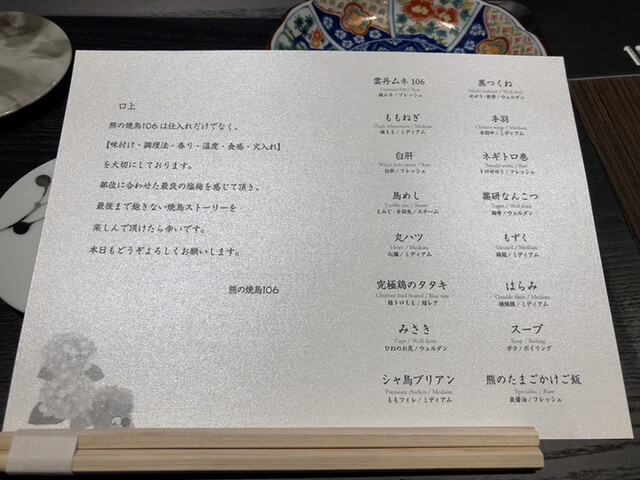 口上
熊の焼鳥106は仕入れだけでなく、
【味付け・調理法・香り・温度・食感・火入れ】
を大切にしております。
部位に合わせた最良の塩梅を感じて頂き、
最後まで飽きない焼鳥ストーリーを
楽しんで頂けたら幸いです。
本日もどうぞよろしくお願いします。
熊の焼鳥106
雲丹ムネ 106
/ Raw
雌ムネ / フレッシュ
ももねぎ
Thigh w/ / Medium
雌もも / ミディアム
白肝
White liver / Raw
白肝 / フレッシュ
鳥めし
Truffle rice / Steam
もみじ・手羽先 / スチーム
丸ハツ
Heart / Medium
心臓 / ミディアム
究極鶏のタタキ
Ultimate bird Seared / Blue rare
雌トロもも / 超レア
みさき
Cape / Well done
ひねのお尻 / ウェルダン
シャ鳥ブリアン
Premium chicken / Medium
ももフィレ / ミディアム
黒つくね
/ Well done
せせり・軟骨 / ウェルダン
手羽
Chicken wings / Medium
手羽中 / ミディアム
ネギトロ巻
/ Raw
トロせせり / フレッシュ
薬研なんこつ
Yagen / Well done
胸骨 / ウェルダン
もずく
Gizzard / Medium
/ ミディアム
はらみ
Outside Skirt / Medium
横隔膜 / ミディアム
スープ
Soup / Boiling
ガラ / ボイリング
熊のたまごかけご飯
Specialite / Raw
炭醤油 / フレッシュ